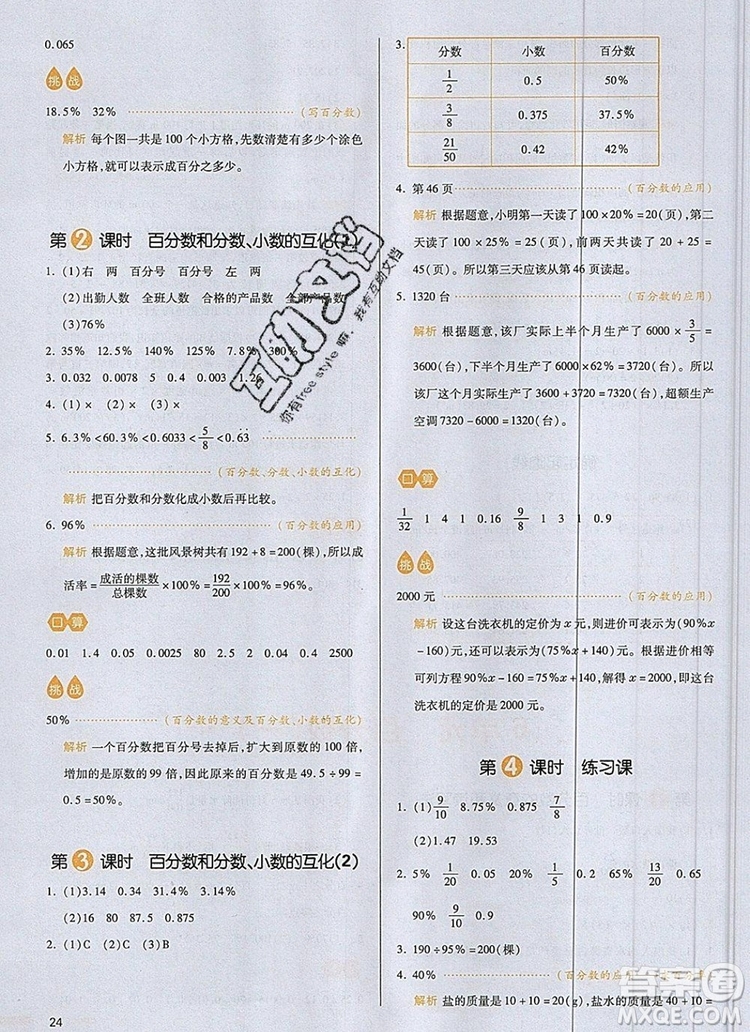 0.065
挑战
18.5% 32% (写百分数)
解析 每个图一共是100个小方格,先数清楚有多少个涂色
小方格,就可以表示成百分之多少。
第2课时 百分数和分数、小数的互化(1)
1. (1)右 两 百分号 百分号 左 两
(2)出勤人数 全班人数 合格的产品数 全部产品数
(3)76%
2. 35% 12.5% 140% 125% 7.8% 300%
3. 0.032 0.0078 5 0.4 0.0003
4. (1)× (2)× (3)×
5. 6.3%<60.3%<0.6033<5/8<0.6̇3̇
(百分数、分数、小数的互化)
解析 把百分数和分数化成小数后再比较。
6. 96% (百分数的应用)
解析 根据题意,这批风景树共有192+8=200(棵),所以成
活率=成活的棵数/总棵数×100%=192/200×100%=96%。
口算
0.01 1.4 0.05 0.0025 2.2 0.04 0.4 2500
挑战
50% (百分数的意义及百分数、小数的互化)
解析 一个百分数把百分号去掉后,扩大到原数的100倍,
增加的是原数的99倍,因此原来的百分数是49.5÷99=
0.5=50%。
第3课时 百分数和分数、小数的互化(2)
1. (1)3.14 0.34 31.4% 3.14%
(2)16 80 87.5 0.875
2. (1)C (2)B (3)C
24
3.
分数 小数 百分数
1/2 0.5 50%
3/8 0.375 37.5%
21/50 0.42 42%
4. 第46页 (百分数的应用)
解析 根据题意,小明第一天读了100×20%=20(页),第二
天读了100×25%=25(页),前两天共读了20+25=
45(页)。所以第三天应该从第46页读起。
5. 1320台 (百分数的应用)
解析 根据题意,该厂实际上半个月生产了6000×3/5=
3600(台),下半个月生产了6000×62%=3720(台),所
以该厂这个月实际生产了3600+3720=7320(台),超额生产
空调7320-6000=1320(台)。
口算
1/32 1 4 1 0.16 9/8 1 3 1 0.9
挑战
2000元 (百分数的应用)
解析 设这台洗衣机的定价为x元,则进价可表示为(90%x
-160)元,还可以表示为(75%x+140)元,根据进价相等
可列方程90%x-160=75%x+140,解得x=2000,即这台
洗衣机的定价是2000元。
第4课时 练习课
1. (1)9/10 8.75% 0.875 7/8
(2)1.47 19.53
2. 5% 1/20 0.05 20% 9/20 0.45 65% 13/20 0.65
90% 9/10 0.9
3. 190÷95%=200(棵)
4. 40% (百分数的应用)
解析 盐的质量是10+10=20(g),盐水的质量是40+10=
互助文档
你有free style嘛,我有互助文档
答案圈
MXQE.COM